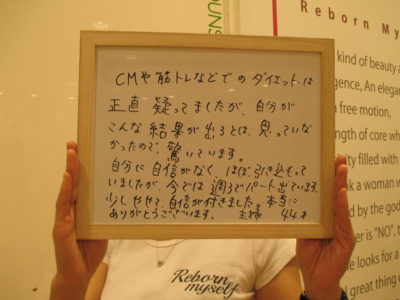 Reborn My
CMや筋トレなどでのダイエットは
正直疑ってましたが、自分が
こんな結果が出るとは、思っていな
かったので、驚いています。
自分に自信がなく、ほぼ引き込もって
いましたが、今では週3でパート出ています。
少しやせて、自信が付きました。本当に
ありがとうございます。 主婦 44才
kind of beauty a
gence, An elegan
free motion,
ngth of core wh
ty filled with
k a woman w
d by the god
er is "NO", t
e looks for a
great thing
Reborn
myself